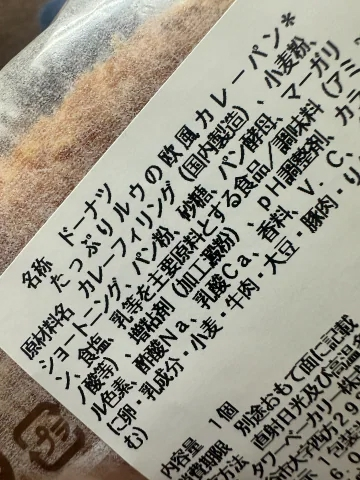 名称 ドーナツ
たっぷりルウの欧風カレーパン*
原材料名 カレーフィリング(国内製造)、小麦粉、
ショートニング、パン粉、砂糖、パン酵母、マーガリ
ン、食塩、乳等を主要原料とする食品/調味料(アミ
ノ酸等)、増粘剤(加工澱粉)、pH調整剤、カラ
ル色素、酢酸Na、乳酸Ca、香料、V.C、
に卵・乳成分・小麦・牛肉・大豆・豚肉・り
む)
内容量 1個
消費期限 別途おもて面に記載
方法 直射日光及び高温多
タワーベーカリー株式
谷市大字西方29
プラ